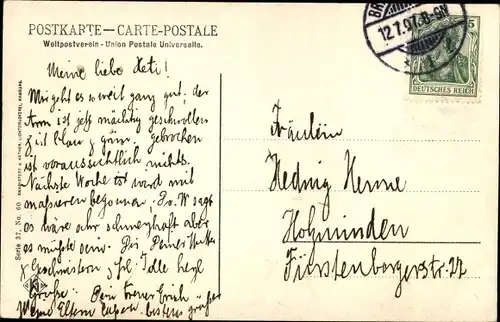 POSTKARTE – CARTE-POSTALE
Weltpostverein - Union Postale Universelle.
12.7.07. 8-9N
5
DEUTSCHES REICH
Meine liebe Heti!
Mir geht es soweit ganz gut; der
Arm ist jetzt mächtig geschwollen
& ist blau & grün, gebrochen
ist voraussichtlich nichts.
Nächste Woche wird mit
massieren begonnen, Dr. W sagt
es wäre sehr schmerzhaft aber
es müßte sein. Dir Deiner Mutter
& Geschwistern, Frl. Idle herzl
Grüße. Dein treuer Erich
Meine Eltern lassen bestens grüßen
Fräulein
Hedwig Henne
Holzminden
Fürstenbergerstr. 27
Serie 37, No. 60